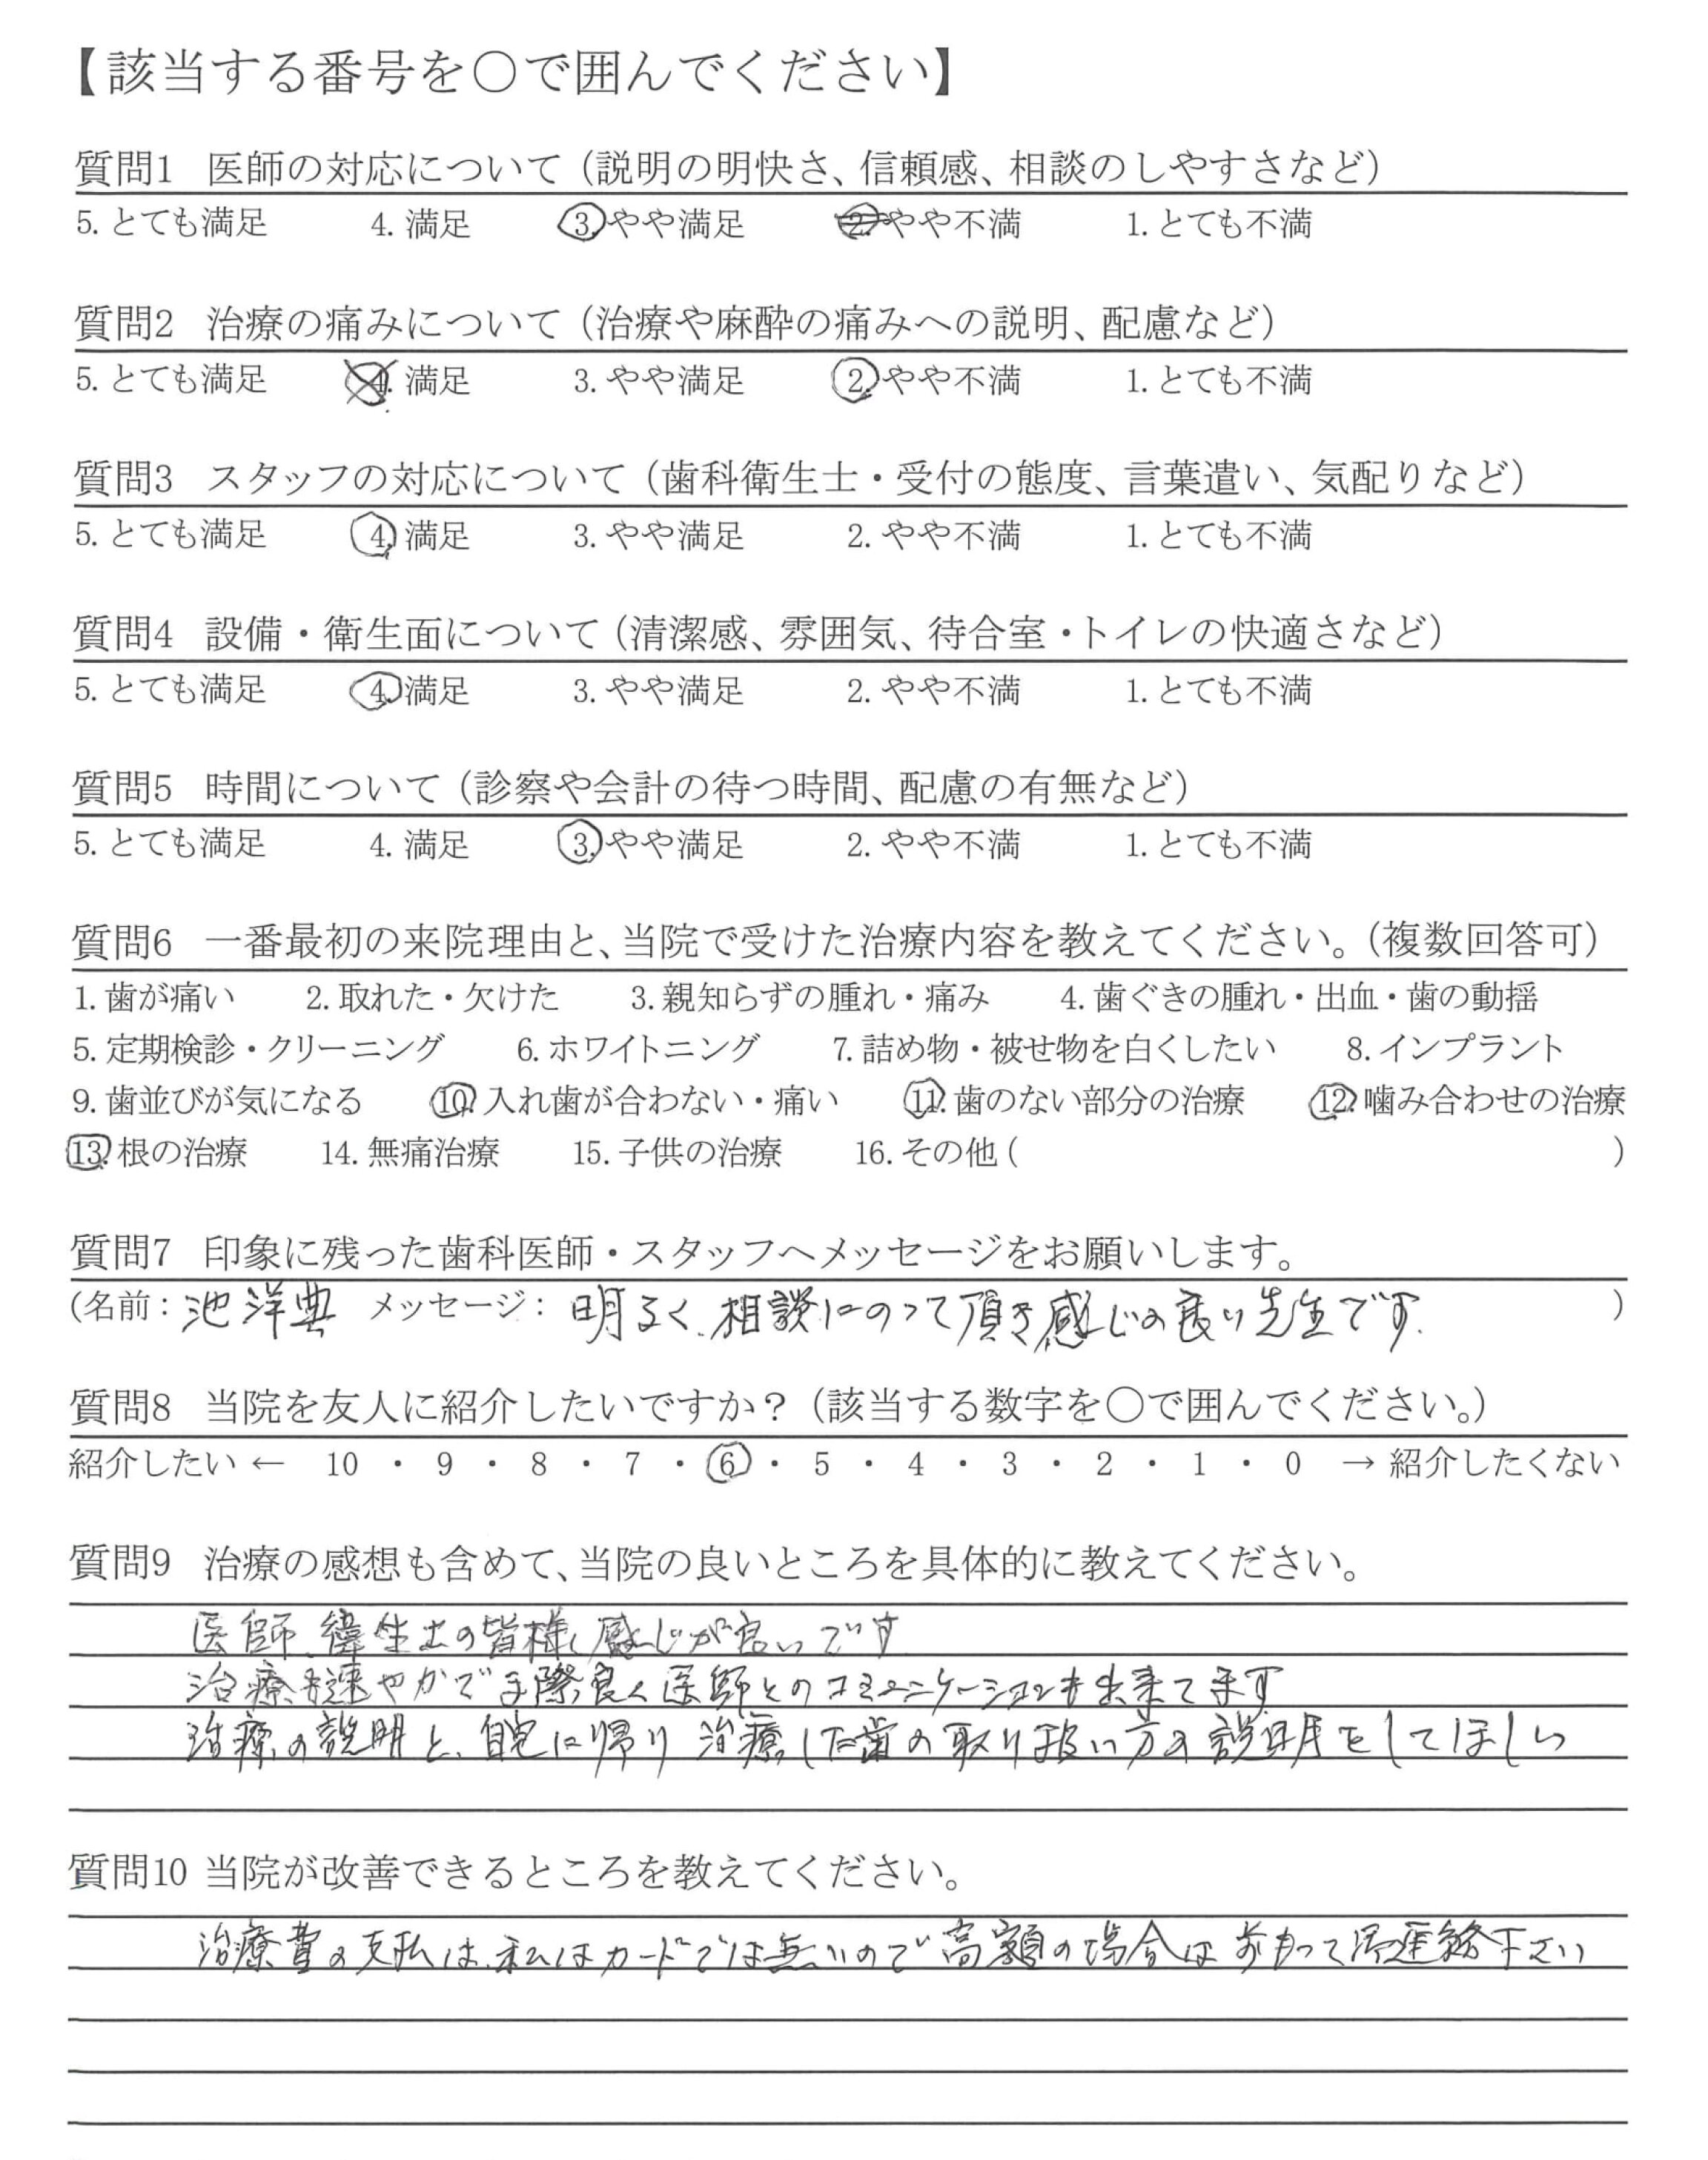 【該当する番号を○で囲んでください】
質問1 医師の対応について（説明の明快さ、信頼感、相談のしやすさなど）
5. とても満足 4. 満足 3. やや満足 2. やや不満 1. とても不満
質問2 治療の痛みについて（治療や麻酔の痛みへの説明、配慮など）
5. とても満足 4. 満足 3. やや満足 2. やや不満 1. とても不満
質問3 スタッフの対応について（歯科衛生士・受付の態度、言葉遣い、気配りなど）
5. とても満足 4. 満足 3. やや満足 2. やや不満 1. とても不満
質問4 設備・衛生面について（清潔感、雰囲気、待合室・トイレの快適さなど）
5. とても満足 4. 満足 3. やや満足 2. やや不満 1. とても不満
質問5 時間について（診察や会計の待つ時間、配慮の有無など）
5. とても満足 4. 満足 3. やや満足 2. やや不満 1. とても不満
質問6 一番最初の来院理由と、当院で受けた治療内容を教えてください。（複数回答可）
1. 歯が痛い 2. 取れた・欠けた 3. 親知らずの腫れ・痛み 4. 歯ぐきの腫れ・出血・歯の動揺
5. 定期検診・クリーニング 6. ホワイトニング 7. 詰め物・被せ物を白くしたい 8. インプラント
9. 歯並びが気になる 10. 入れ歯が合わない・痛い 11. 歯のない部分の治療 12. 噛み合わせの治療
13. 根の治療 14. 無痛治療 15. 子供の治療 16. その他 ( )
質問7 印象に残った歯科医師・スタッフへメッセージをお願いします。
(名前： 池 洋典 メッセージ： 明るく、相談にのって頂き感じの良い先生です. )
質問8 当院を友人に紹介したいですか？（該当する数字を○で囲んでください。）
紹介したい ← 10 ・ 9 ・ 8 ・ 7 ・ 6 ・ 5 ・ 4 ・ 3 ・ 2 ・ 1 ・ 0 → 紹介したくない
質問9 治療の感想も含めて、当院の良いところを具体的に教えてください。
医師、衛生士の皆様、感じが良いです
治療も速やかで手際良く医師とのコミュニケーションも出来てます
治療の説明と、自宅に帰り治療した歯の取り扱い方の説明をしてほしい
質問10 当院が改善できるところを教えてください。
治療費の支払は、私はカードでは無いので高額の場合は前もって連絡下さい